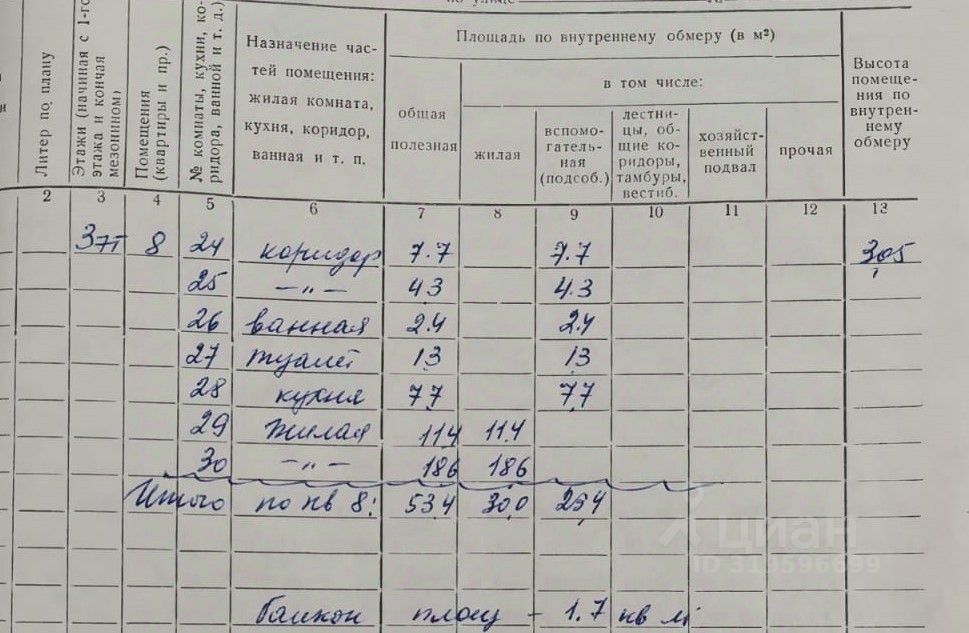 Литер по плану
Этажи (начиная с 1-го этажа и кончая мезонином)
Помещения (квартиры и пр.)
№ комнаты, кухни, коридора, ванной и т. д.)
Назначение час-
тей помещения:
жилая комната,
кухня, коридор,
ванная и т. п.
Площадь по внутреннему обмеру (в м²)
общая
полезная
в том числе:
жилая
вспомо-
гатель-
ная
(подсоб.)
лестни-
цы, об-
щие ко-
ридоры,
тамбуры,
вестиб.
хозяйст-
венный
подвал
прочая
Высота
помеще-
ния по
внутрен-
нему
обмеру
2 3 4 5 6 7 8 9 10 11 12 13
3эт 8 24 коридор 7.7 7.7 3,05
25 —〃— 4.3 4.3
26 ванная 2.4 2.4
27 туалет 1,3 1,3
28 кухня 7,7 7,7
29 жилая 11,4 11,4
30 —〃— 18,6 18,6
Итого по кв 8: 53,4 30,0 23,4
балкон площ – 1.7 кв м
циан
ID 319596699